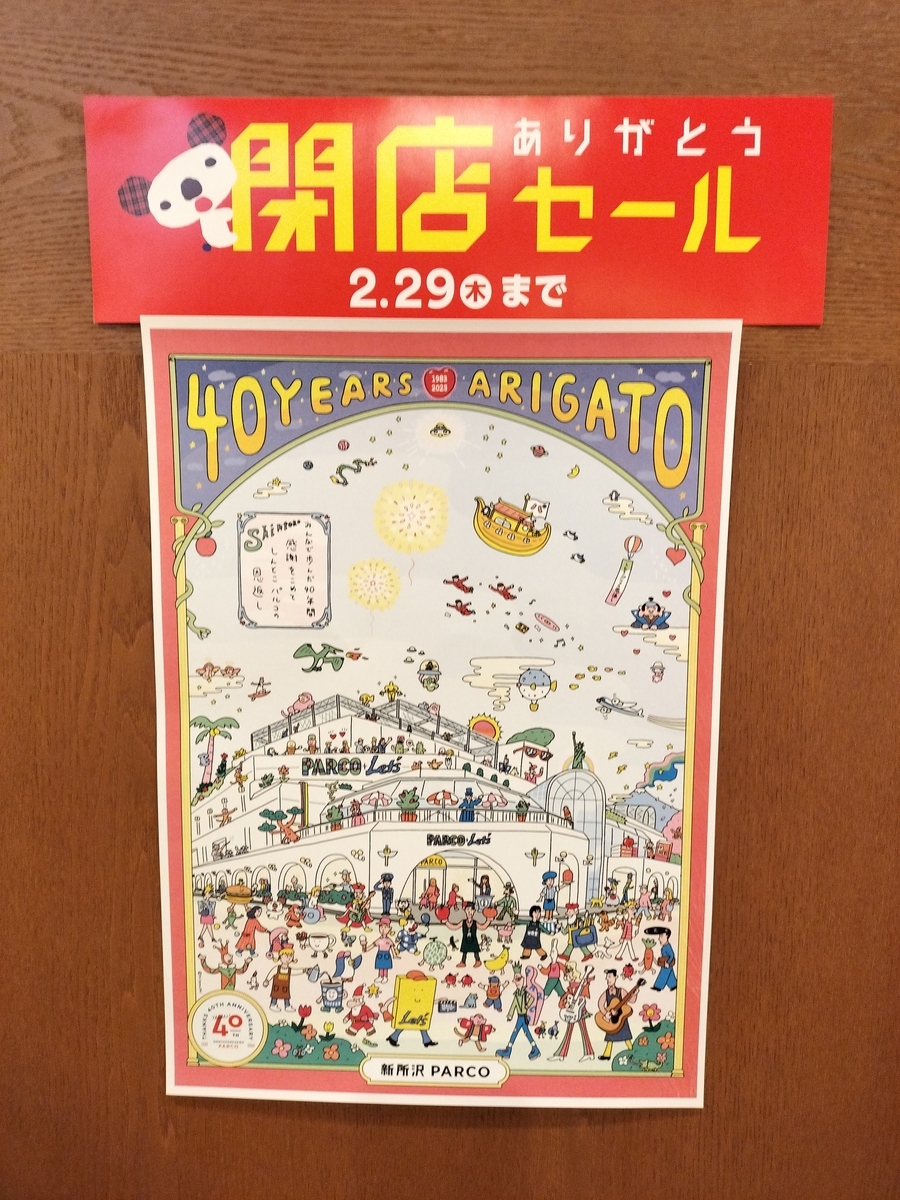 ありがとう
閉店セール
2.29㊍まで
40 YEARS 1983 2023 ARIGATO
SHINTOKO
みんなで歩んだ40年間
感謝をこめて
しんとこパルコの
恩返し
パ
PARCO Let's
PARCO Let's
PARCO
Let's
THANKS 40TH ANNIVERSARY
40TH
ANNIVERSARY
PARCO
新所沢 PARCO